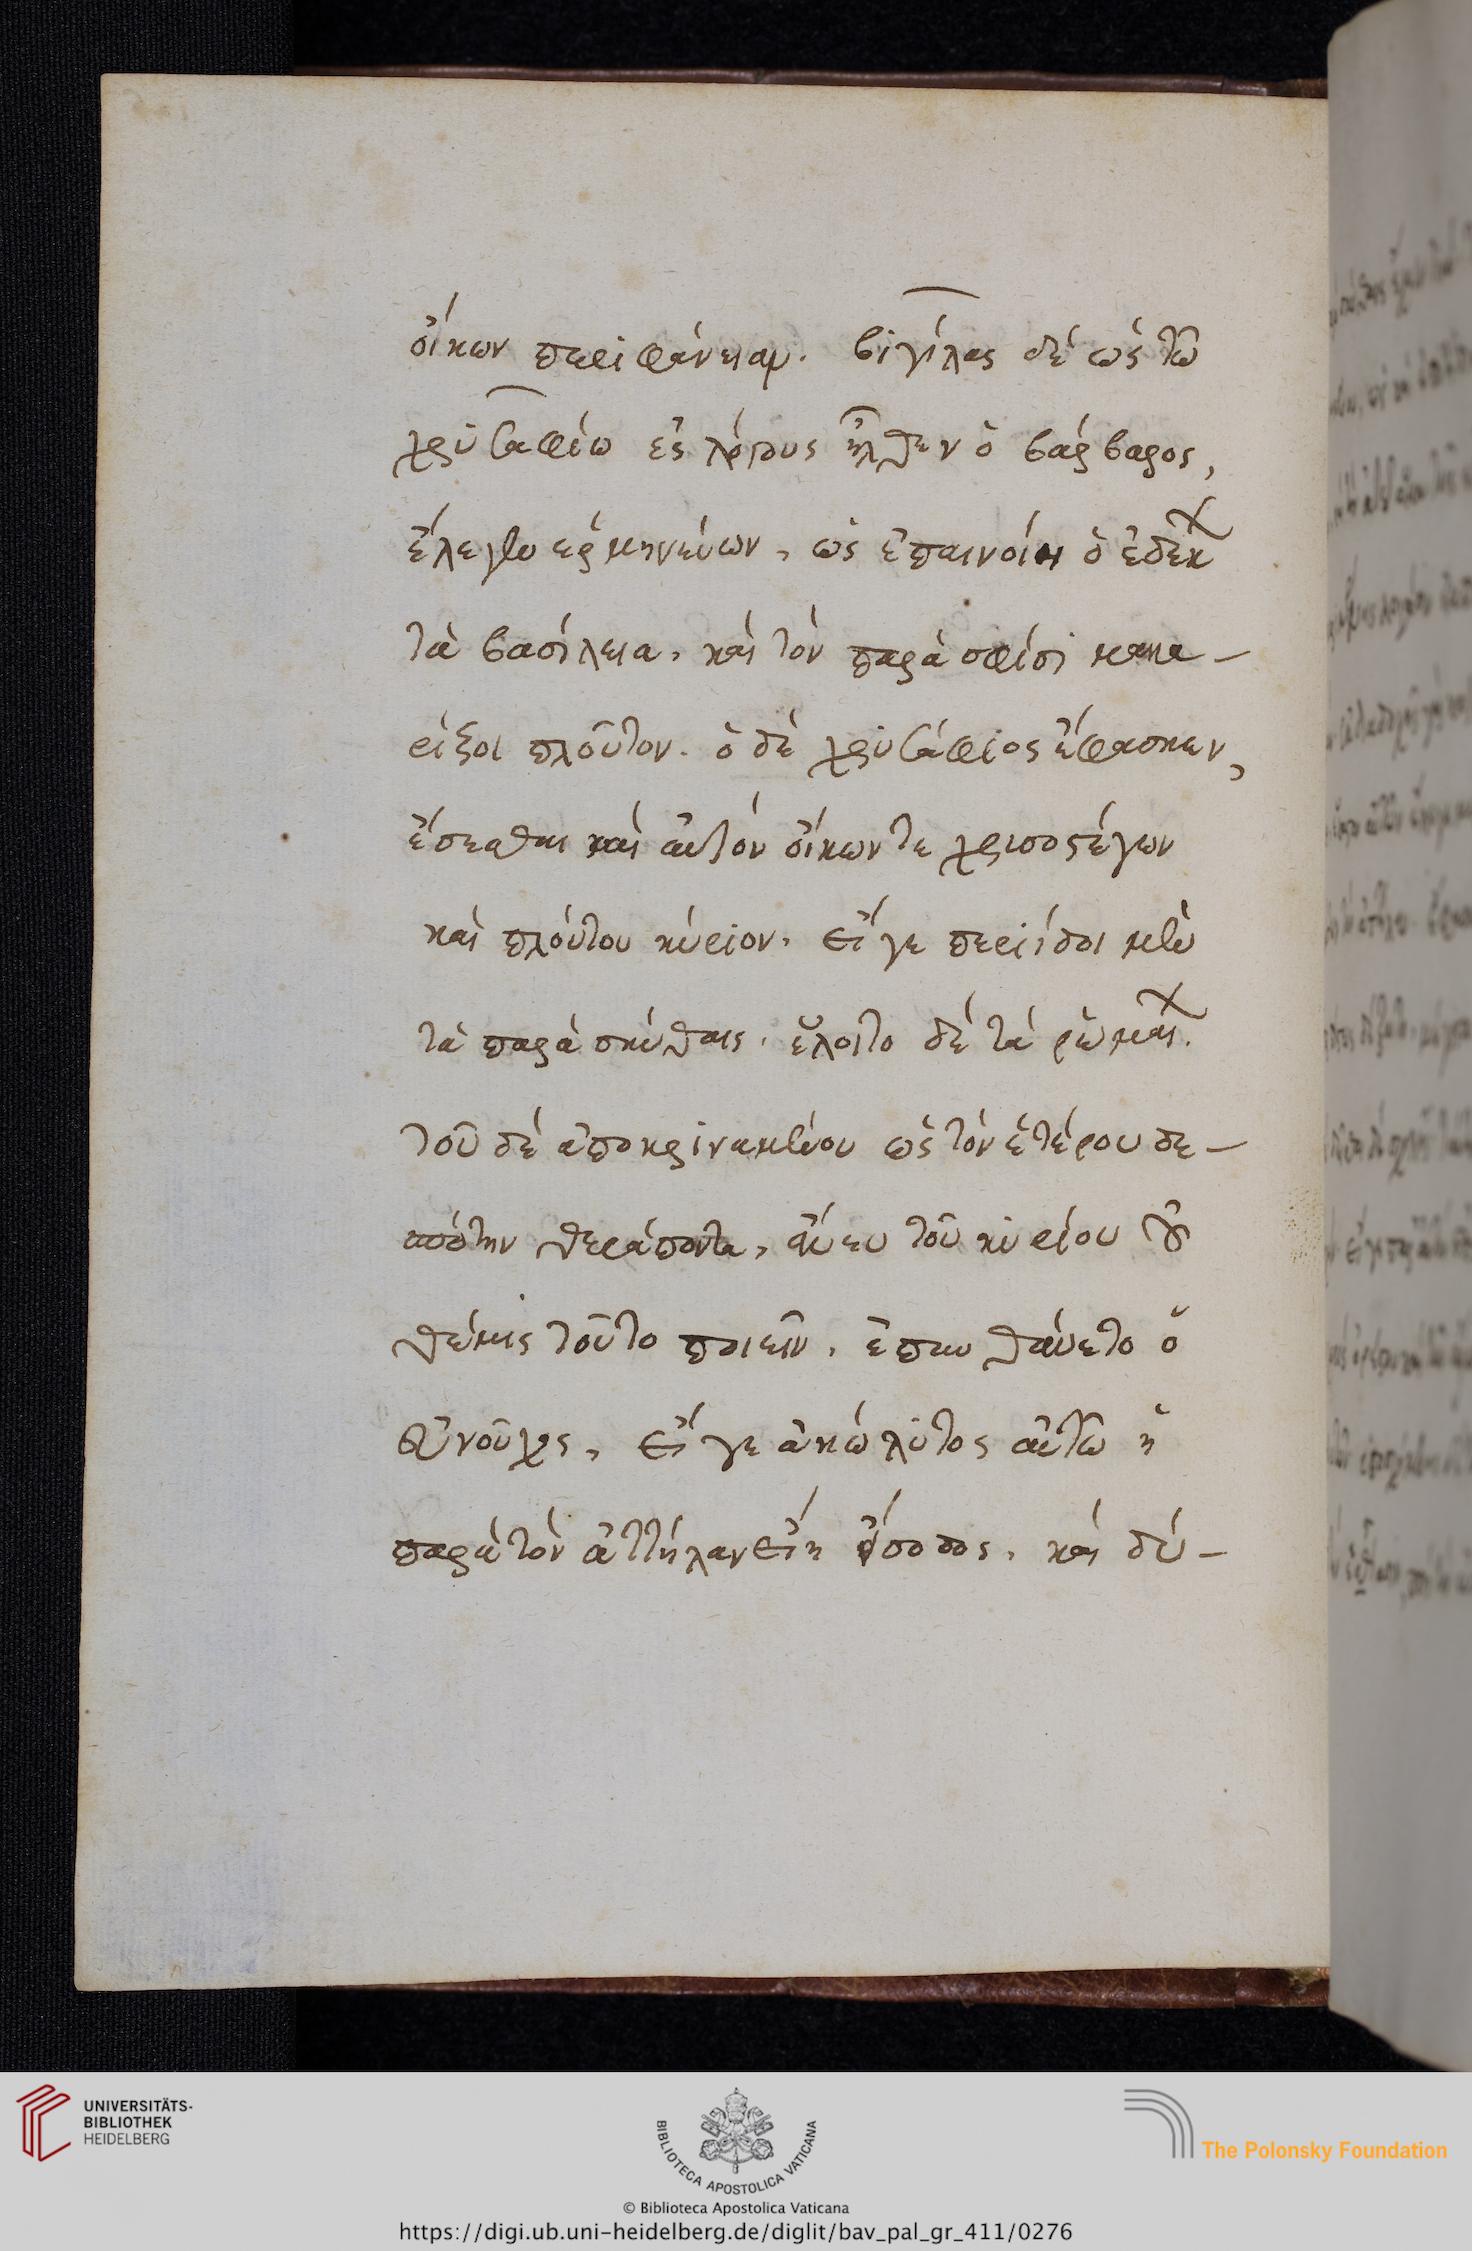 οἴκων περιφάνειαν. βιγίλας δέ ὡς τῶ
χρυσαφίω ἐς λόγους ἦλθεν ὁ βάρβαρος,
ἔλεγεν ἑρμηνεύων, ὡς ἐπαινοίη ὁ ἐδέκ
τὰ βασίλεια, καὶ τὸν παρὰ σφίσι μακα-
ρίξοι πλοῦτον. ὁ δὲ χρυσάφιος ἔφασκεν,
ἔσεσθαι καὶ αὐτόν οἴκων τε χρισοστέγων
καὶ πλούτου κύριον, εἴγε περιίδοι μὲν
τὰ παρὰ σκύθαις, ἕλοιτο δέ τά ῥωμαι.
τοῦ δὲ ἀποκριναμένου ὡς τὸν ἑτέρου δε-
σπότην θεράποντα, ἄνευ τοῦ κυρίου οὐ
θέμις τοῦτο ποιεῖν, ἐπυνθάνετο ὁ
εὐνοῦχος, εἴγε ἀκώλυτος αὐτῶ ἡ
παρὰ τὸν ἀττήλαν εἴη ἔσοδος, καὶ δύ-
UNIVERSITÄTS-
BIBLIOTHEK
HEIDELBERG
BIBLIOTECA APOSTOLICA VATICANA
The Polonsky Foundation
© Biblioteca Apostolica Vaticana
https://digi.ub.uni-heidelberg.de/diglit/bav_pal_gr_411/0276